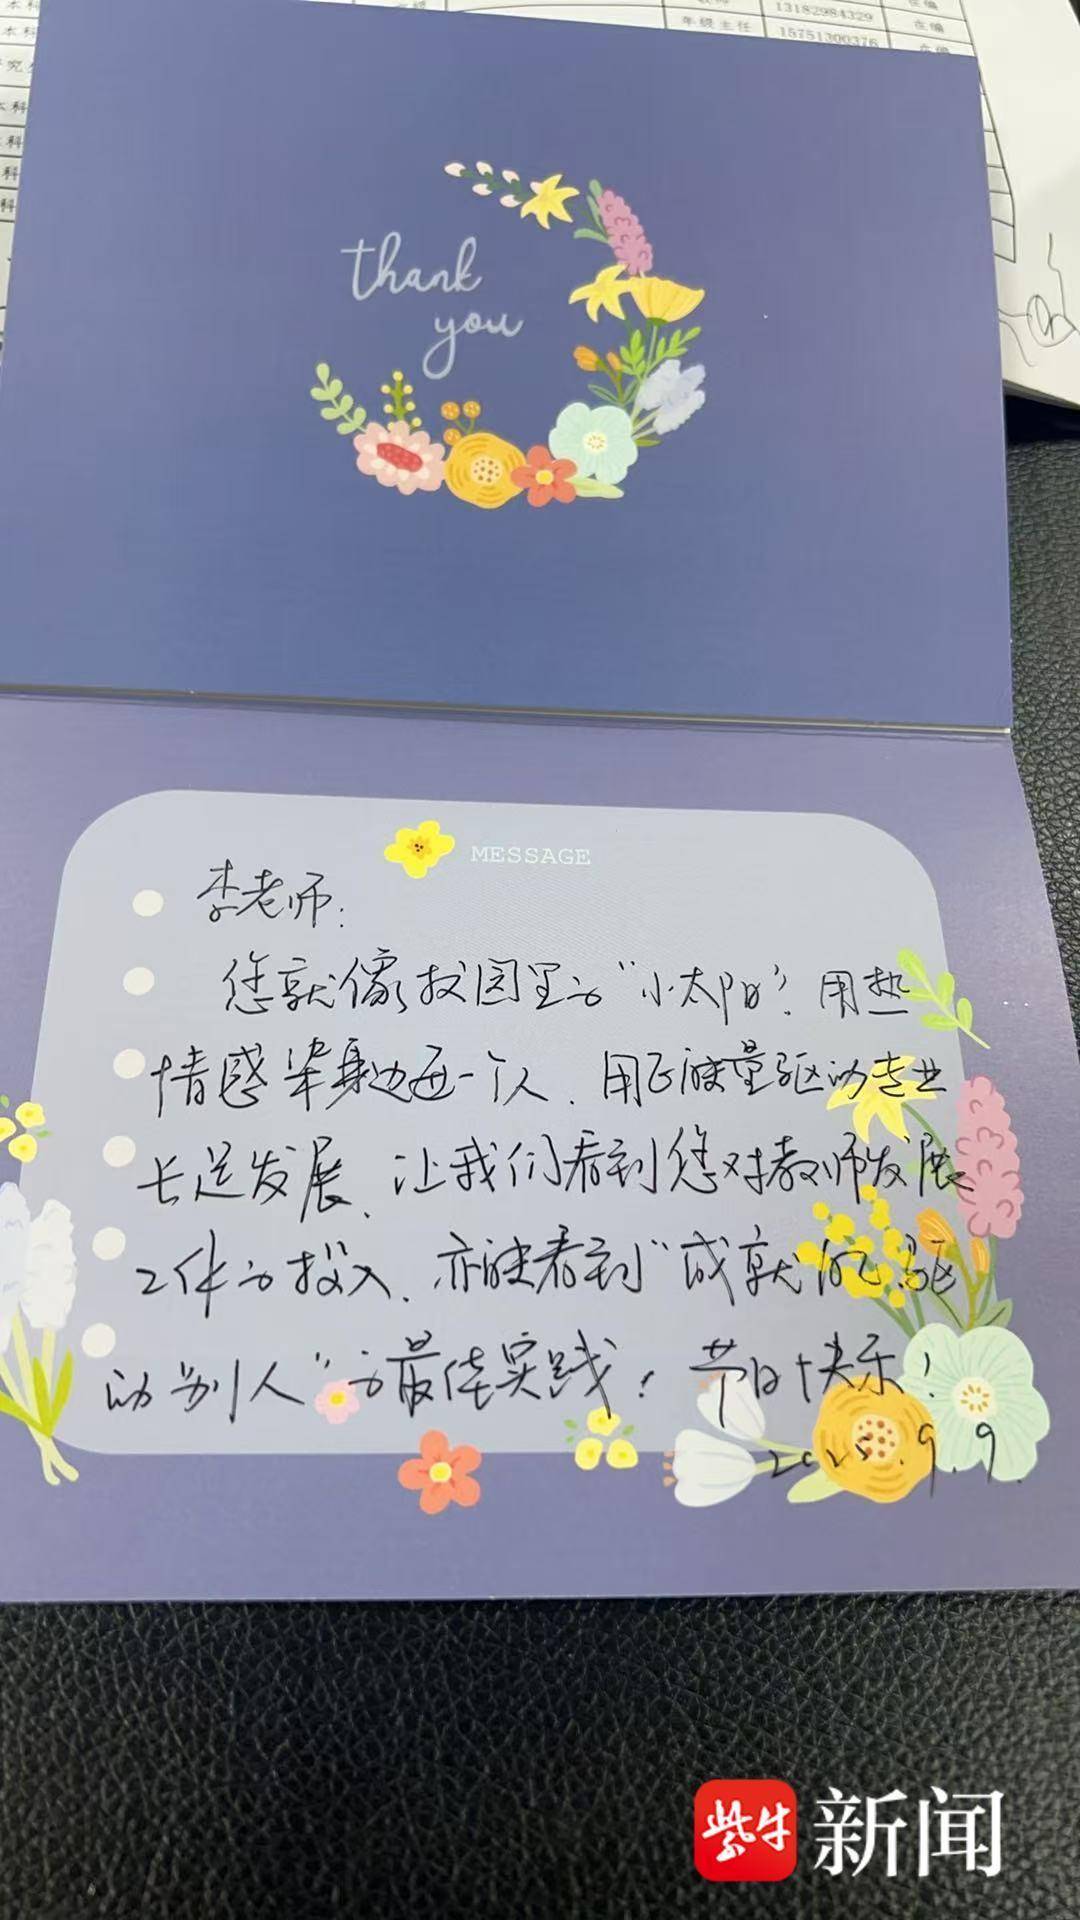 本科
年级主任
13182984329
15751300376
在编
在编
本科
本科
thank
you
MESSAGE
李老师：
您就像校园里的“小太阳”，用热
情感染身边每一个人，用正能量驱动专业
长远发展，让我们看到您对教师发展
工作的投入，亦能看到“成就自己，驱
动别人”的最佳实践！节日快乐！
2025.9.9.
紫牛新闻